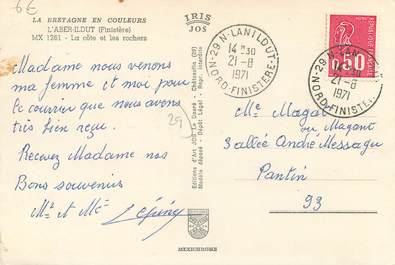 6€
LA BRETAGNE EN COULEURS
L'ABER-ILDUT (Finistère)
MX 1261 - La côte et les rochers
IRIS
JOS
29 N-LANILDUT
14 H 30
21-8
1971
NORD-FINISTERE
REPUBLIQUE FRANCAISE
0,50
Madame nous venons
ma femme et moi pour
le courrier que nous avons
très bien reçu.
Recevez Madame nos
Bons souvenirs
Mr et Me Lepine
29
Editions d'Art JOS Le Doaré - Châteaulin (29)
Modèle déposé - Dépôt Légal - Repr. interdite
Me Magat
ou Magant
3 allée André Messager
Pantin
93
MEXICHROME